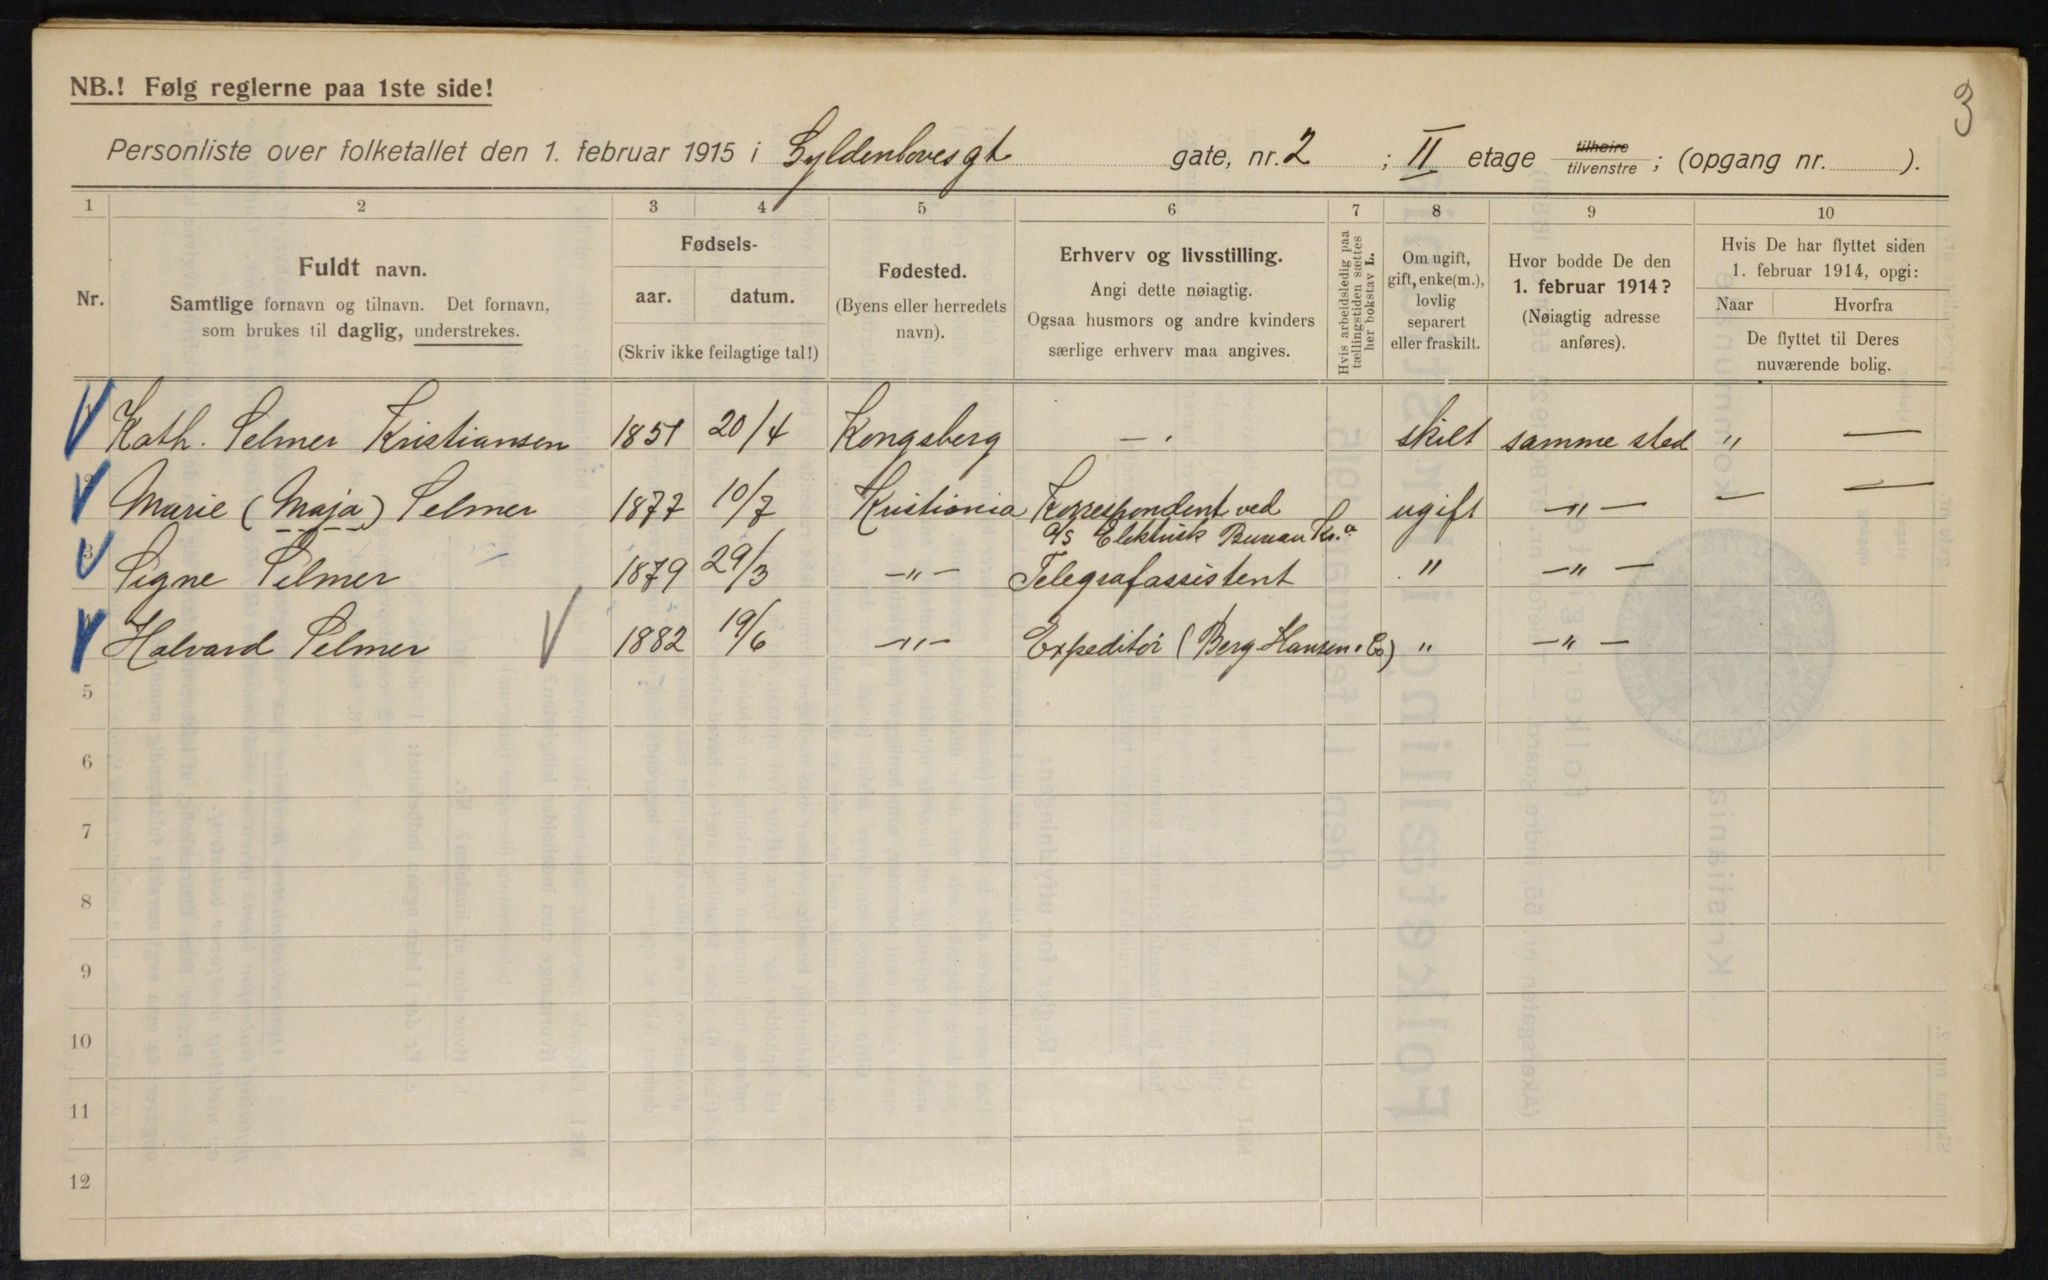 3
NB.! Følg reglerne paa 1ste side!
Personliste over folketallet den 1. februar 1915 i Gyldenlovesgt gate, nr. 2 ; II etage tilhøire tilvenstre ; (opgang nr. ).
1 2 3 4 5 6 7 8 9 10
Nr.
Fuldt navn.
Samtlige fornavn og tilnavn. Det fornavn,
som brukes til daglig, understrekes.
Fødsels-
aar. datum.
(Skriv ikke feilagtige tal!)
Fødested.
(Byens eller herredets
navn).
Erhverv og livsstilling.
Angi dette nøiagtig.
Ogsaa husmors og andre kvinders
særlige erhverv maa angives.
Hvis arbeidsledig paa
tællingstiden sættes
her bokstav L.
Om ugift,
gift, enke(m.),
lovlig
separert
eller fraskilt.
Hvor bodde De den
1. februar 1914?
(Nøiagtig adresse
anføres).
Hvis De har flyttet siden
1. februar 1914, opgi:
Naar Hvorfra
De flyttet til Deres
nuværende bolig.
Kath. Selmer Kristiansen 1851 20/4 Kongsberg —„ skilt samme sted „ —
2 Marie (Maja) Selmer 1877 10/7 Kristiania Korrespondent ved ugift —„— — —
A/S Elektrisk Bureau Kr.a
3 Signe Selmer 1879 29/3 —„— Telegrafassistent „ —„—
4 Halvard Selmer 1882 19/6 —„— Expeditør (Berg Hansen & Co) „ —„—
5
6
7
8
9
10
11
12